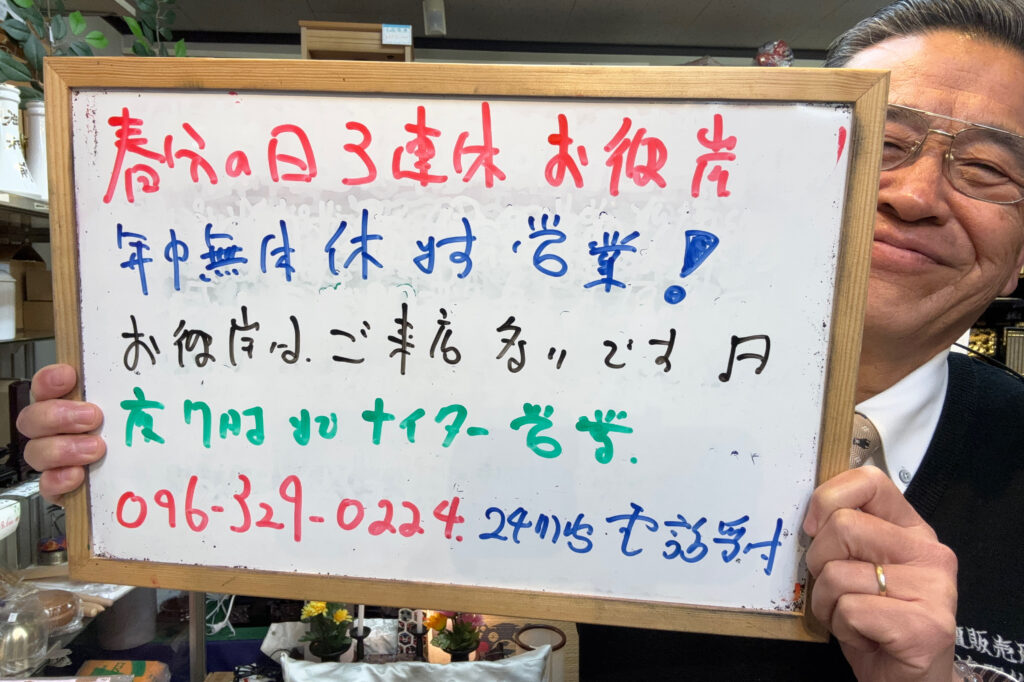 春分の日 3連休 お彼岸
年中無休 休まず 営業!
お彼岸は、ご来店 多いです
夜7時まで ナイター営業.
096-329-0224. 24時間 電話受付
販売